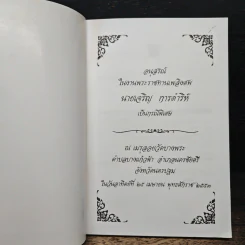 อนุสรณ์
ในงานพระราชทานเพลิงศพ
นายเจริญ การดำริห์
เป็นกรณีพิเศษ
ณ เมรุลอยวัดบางพระ
ตำบลบางแก้วฟ้า อำเภอนครชัยศรี
จังหวัดนครปฐม
ในวันอาทิตย์ที่ ๒๕ เมษายน พุทธศักราช ๒๕๕๓